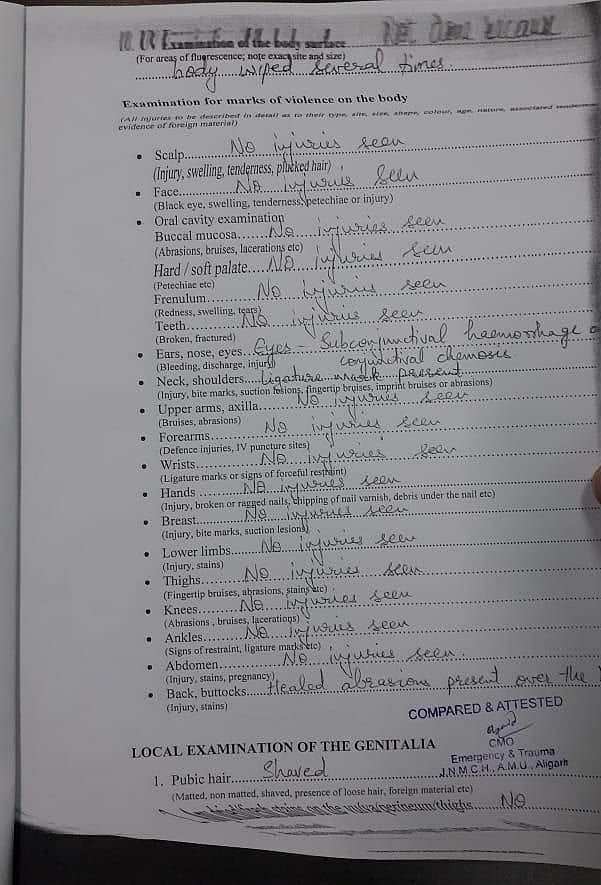 10. UV Examination of the body surface
(For areas of fluorescence; note exact site and size)
body wiped several times.
Examination for marks of violence on the body
(All injuries to be described in detail as to their type, site, size, shape, colour, age, nature, associated tenderness
evidence of foreign material)
• Scalp......No injuries seen
(Injury, swelling, tenderness, plucked hair)
• Face......No injuries seen
(Black eye, swelling, tenderness, petechiae or injury)
• Oral cavity examination
Buccal mucosa......No injuries seen
(Abrasions, bruises, lacerations etc)
Hard / soft palate....No injuries seen
(Petechiae etc)
Frenulum......No injuries seen
(Redness, swelling, tears)
Teeth......No injuries seen
(Broken, fractured)
• Ears, nose, eyes...Eyes – Subconjunctival haemorrhage
(Bleeding, discharge, injury) conjunctival chemosis.
• Neck, shoulders....Ligature mark present
(Injury, bite marks, suction lesions, fingertip bruises, imprint bruises or abrasions)
• Upper arms, axilla......No injuries seen
(Bruises, abrasions)
• Forearms......No injuries seen
(Defence injuries, IV puncture sites)
• Wrists......No injuries seen
(Ligature marks or signs of forceful restraint)
• Hands......No injuries seen
(Injury, broken or ragged nails, chipping of nail varnish, debris under the nail etc)
• Breast......No injuries seen
(Injury, bite marks, suction lesions)
• Lower limbs......No injuries seen
(Injury, stains)
• Thighs......No injuries seen
(Fingertip bruises, abrasions, stains etc)
• Knees......No injuries seen
(Abrasions , bruises, lacerations)
• Ankles......No injuries seen
(Signs of restraint, ligature marks etc)
• Abdomen......No injuries seen.
(Injury, stains, pregnancy)
• Back, buttocks....Healed abrasions present over the
(Injury, stains)
COMPARED & ATTESTED
CMO
Emergency & Trauma
J.N.M.C.H., A.M.U., Aligarh
LOCAL EXAMINATION OF THE GENITALIA
1. Pubic hair......Shaved
(Matted, non matted, shaved, presence of loose hair, foreign material etc)
stains on the vulva/perineum/thighs......NO